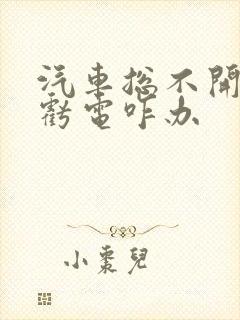 汽車总不開
虧電咋办
小棗兒